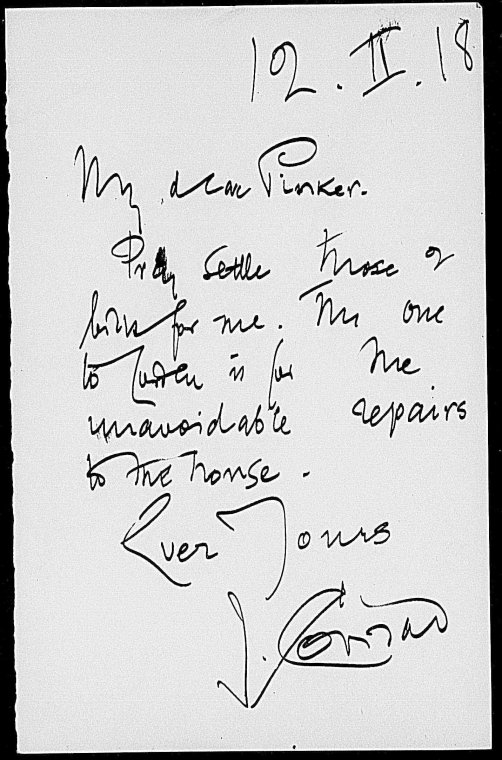 12.II.18
My dear Pinker.
Pray settle those 2
bills for me. The one
to is for the
unavoidable repairs
to the house.
Ever Yours
J. Conrad